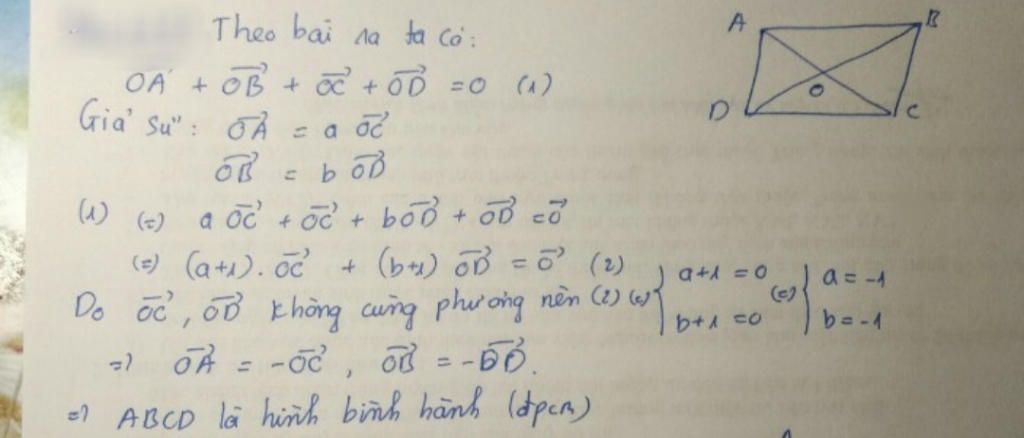 Theo bài ra ta có:
OA + OB + OC + OD = 0 (1)
Giả sử: OA = a OC
OB = b OD
(1) (=) a OC + OC + b OD + OD = 0
(=) (a+1). OC + (b+1) OD = 0 (2)
Do OC, OD không cùng phương nên (2) (=) { a+1 = 0 (=) { a = -1
b+1 = 0 b = -1
=) OA = -OC, OB = -OD.
=) ABCD là hình bình hành (đpcm)
A B
O
D C